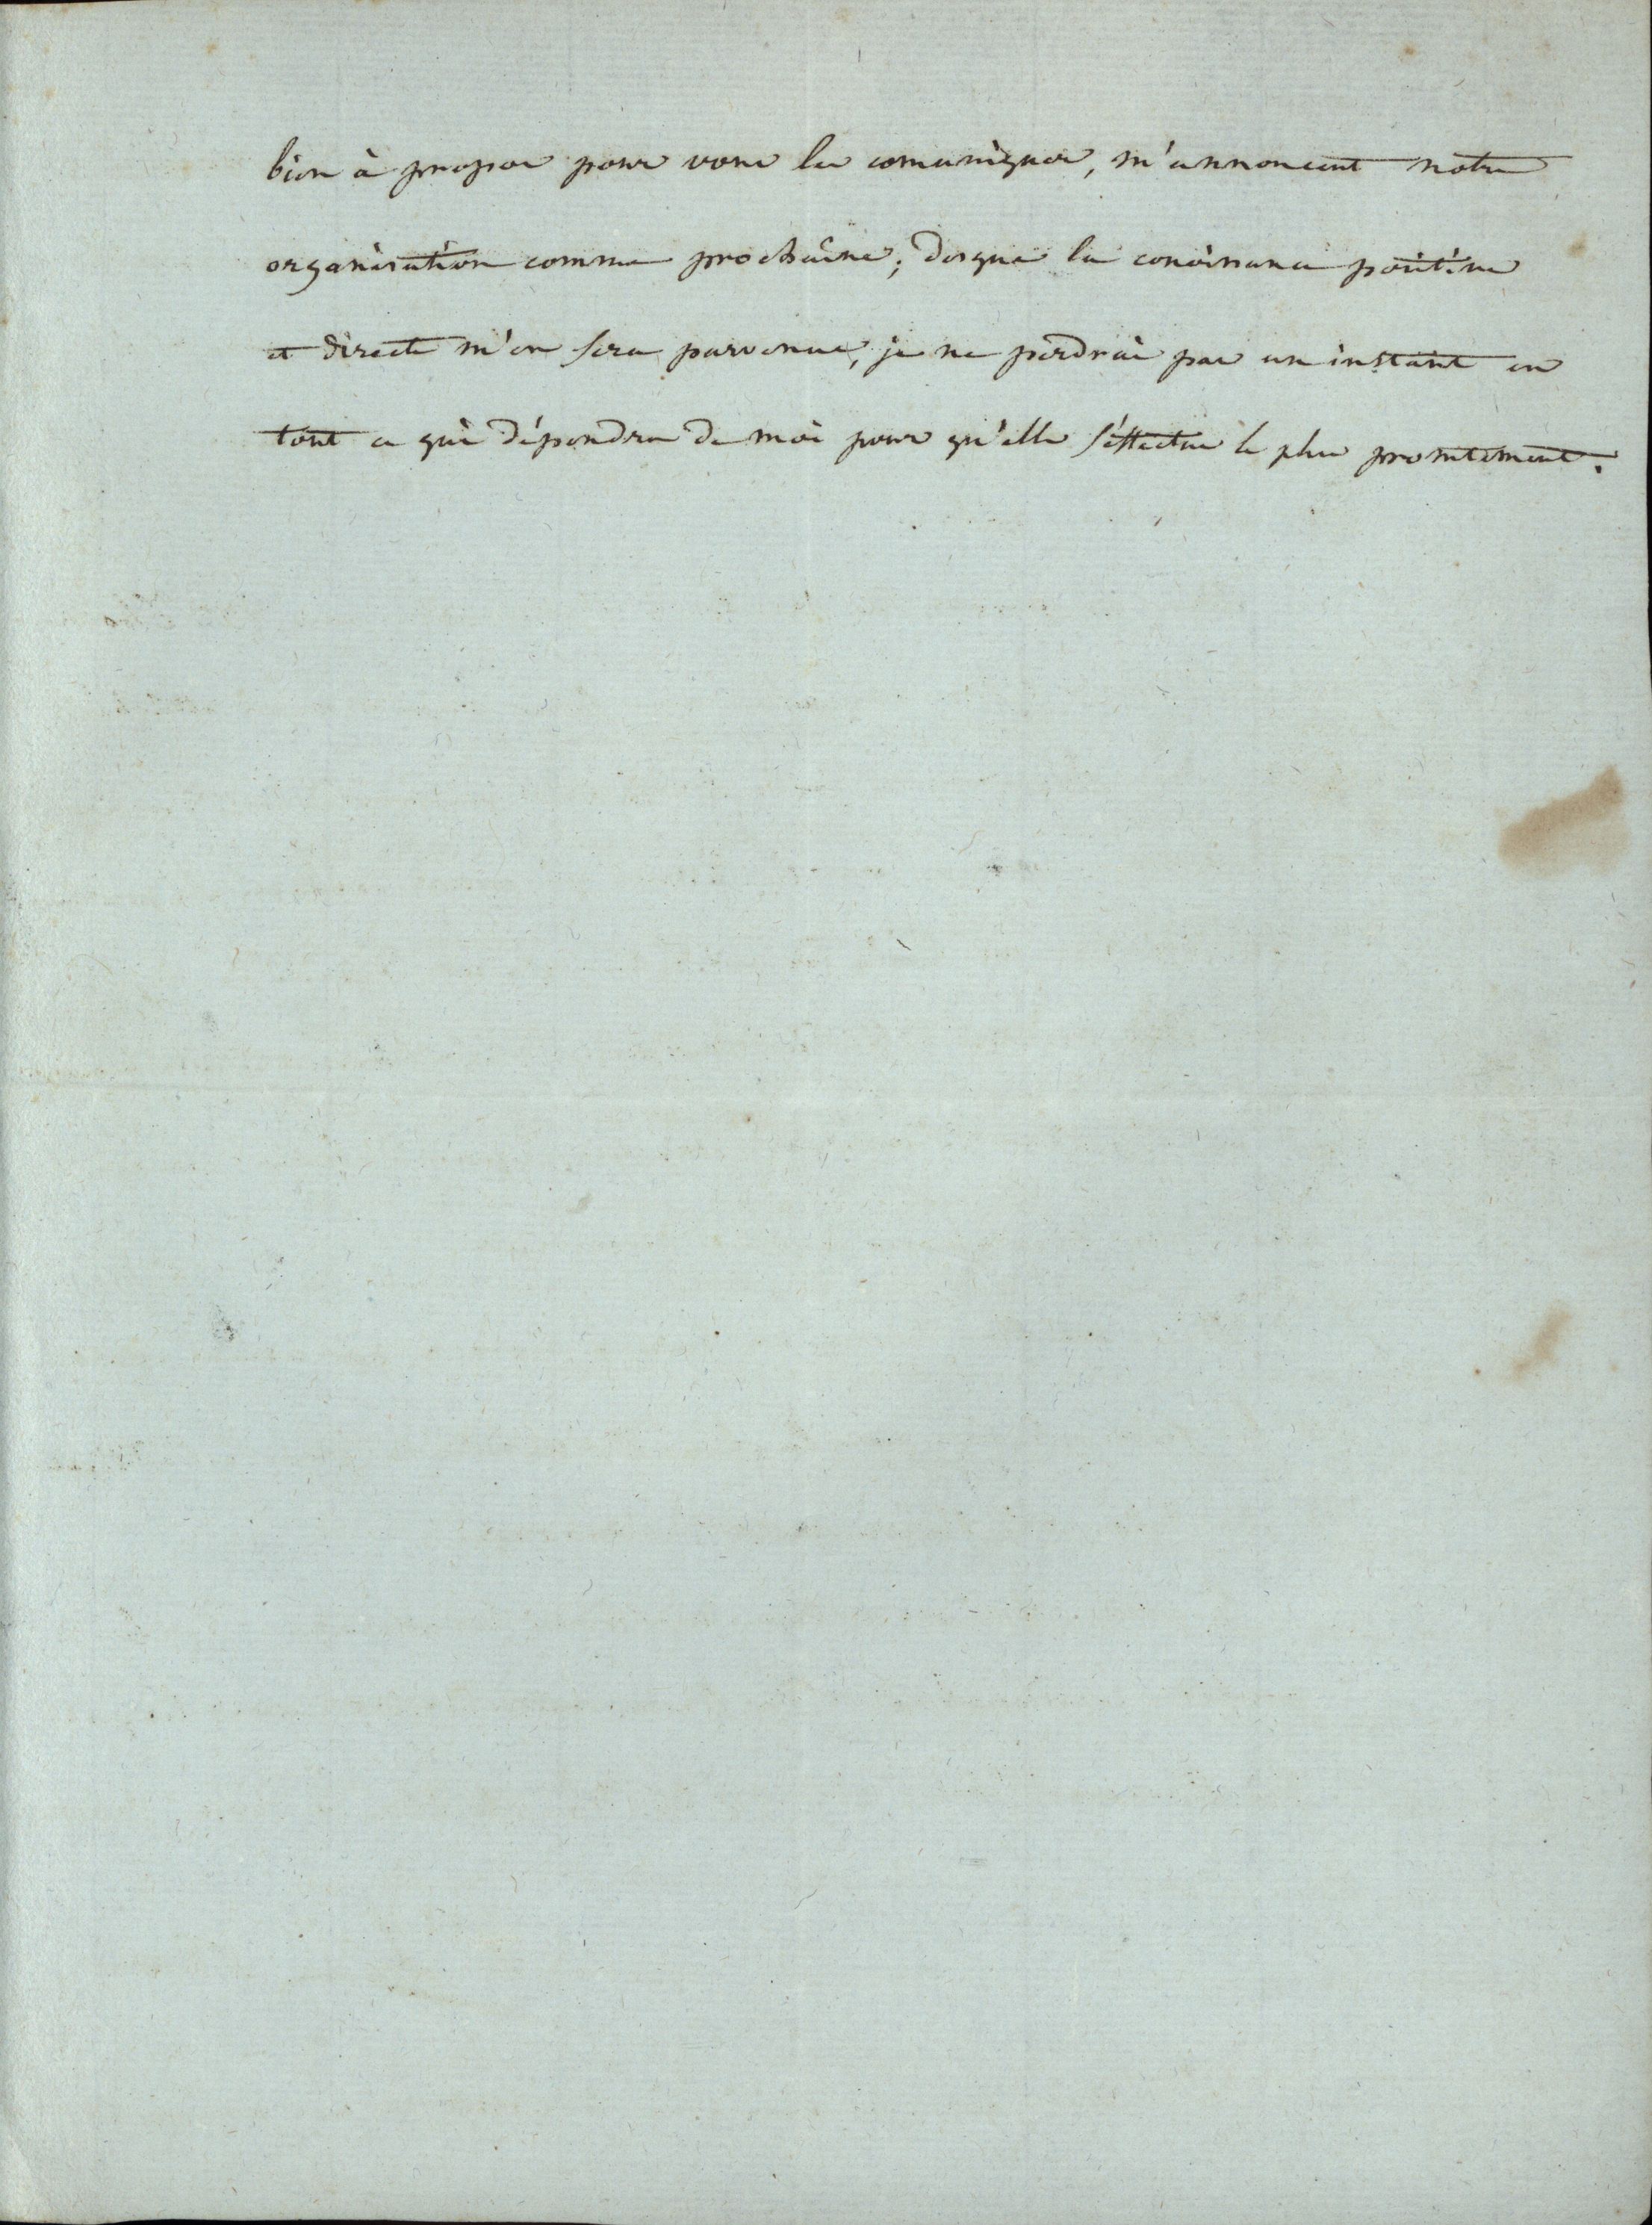 bien à propos pour vous les comuniquer, m'annoncent notre
organisation comme prochaine; desque la conoissance positive
et directe m'en sera parvenue, je ne perdrai pas un instant en
tout ce qui dépendra de moi pour qu'elle s'éffectue le plus promtement.